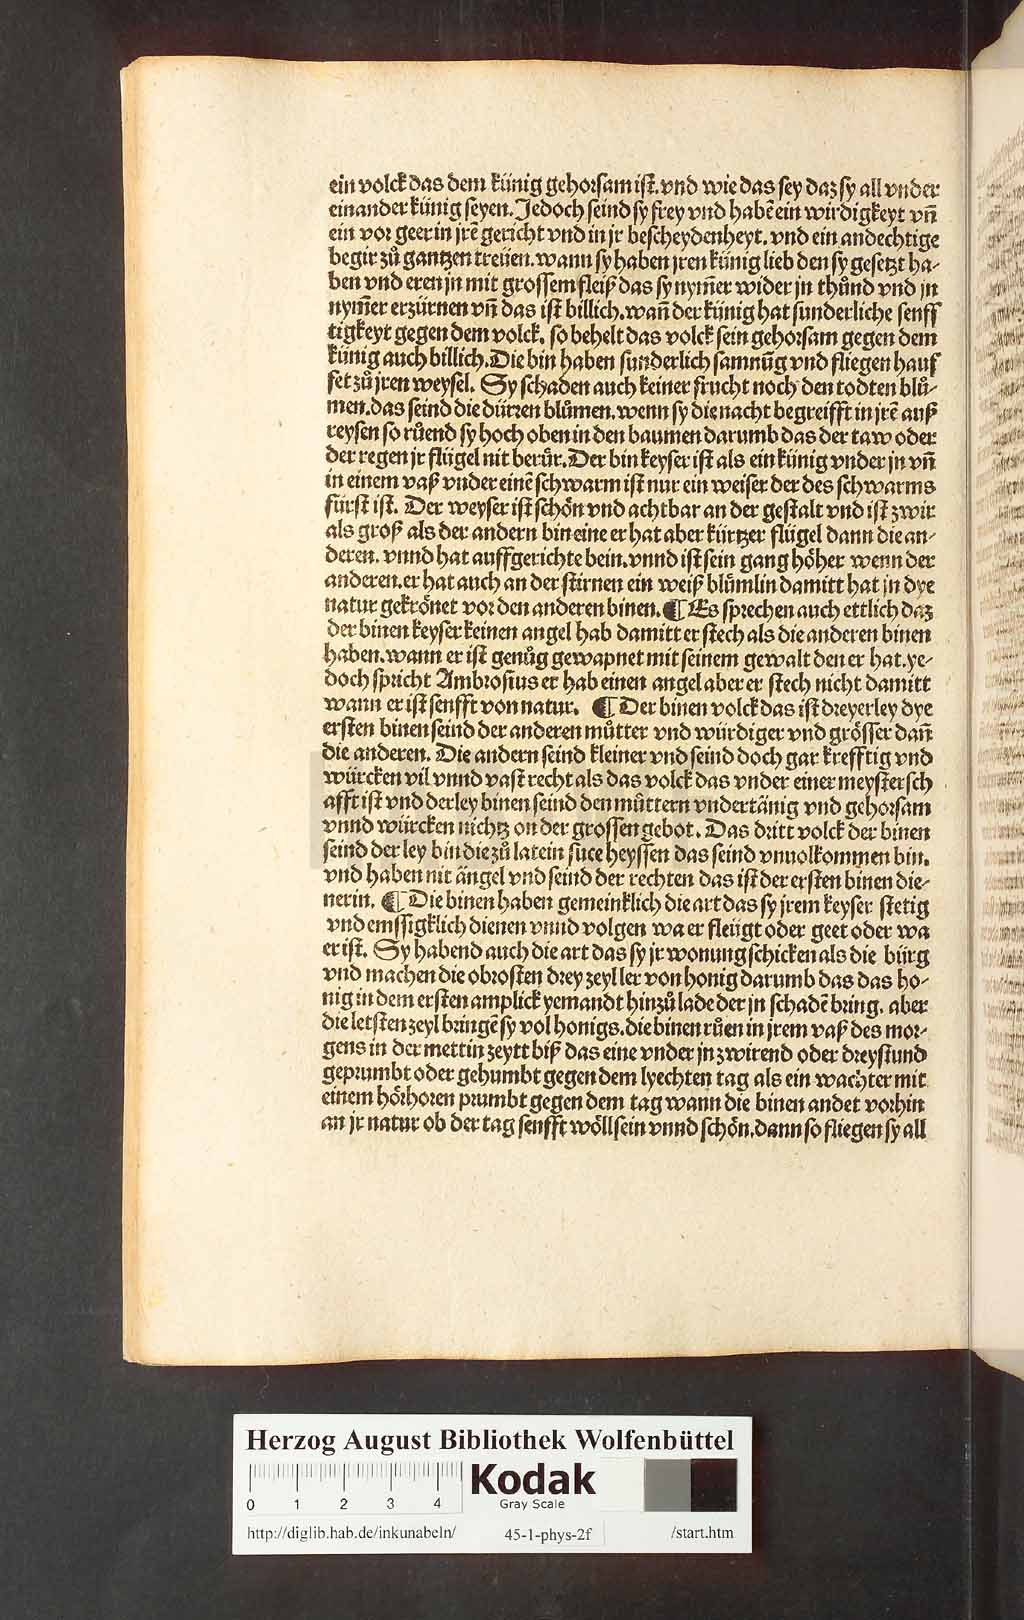 ein volck das dem künig gehorsam ist. vnd wie das sey daz sy all vnder
einander künig seyen. Jedoch seind sy frey vnd habē ein wirdigkeyt vn̄
ein vor geer in jrē gericht vnd in jr bescheydenheyt. vnd ein andechtige
begir zů gantzen treüen. wann sy haben jren künig lieb den sy gesetzt ha-
ben vnd eren jn mit grossem fleiß das sy nym̄er wider jn thůnd vnd jn
nym̄er erzürnen vn̄ das ist billich. wan̄ der künig hat sunderliche senff
tigkeyt gegen dem volck. so behelt das volck sein gehorsam gegen dem
künig auch billich. Die bin haben sunderlich samnūg vnd fliegen hauf
fet zů jren weysel. Sy schaden auch keiner frucht noch den todten blů-
men. das seind die dürren blůmen. wenn sy die nacht begreifft in jrē auß
reysen so růend sy hoch oben in den baumen darumb das der taw oder
der regen jr flügel nit berůr. Der bin keyser ist als ein künig vnder jn vn̄
in einem vaß vnder einē schwarm ist nur ein weiser der des schwarms
fürst ist. Der weyser ist schön vnd achtbar an der gestalt vnd ist zwir
als groß als der andern bin eine er hat aber kürtzer flügel dann die an-
deren. vnnd hat auffgerichte bein. vnnd ist sein gang höher wenn der
anderen. er hat auch an der stirnen ein weiß blůmlin damitt hat jn dye
natur gekrönet vor den anderen binen. ¶ Es sprechen auch ettlich daz
der binen keyser keinen angel hab damitt er stech als die anderen binen
haben. wann er ist genůg gewapnet mit seinem gewalt den er hat. ye-
doch spricht Ambrosius er hab einen angel aber er stech nicht damitt
wann er ist senfft von natur. ¶ Der binen volck das ist dreyerley dye
ersten binen seind der anderen můtter vnd würdiger vnd grösser dan̄
die anderen. Die andern seind kleiner vnd seind doch gar krefftig vnd
würcken vil vnnd vast recht als das volck das vnder einer meystersch
afft ist vnd derley binen seind den můttern vndertänig vnd gehorsam
vnnd würcken nichtz on der grossen gebot. Das dritt volck der binen
seind der ley bin die zů latein fuce heyssen das seind vnuolkommen bin.
vnd haben nit ängel vnd seind der rechten das ist der ersten binen die-
nerin. ¶ Die binen haben gemeinklich die art das sy jrem keyser stetig
vnd emssigklich dienen vnnd volgen wa er fleügt oder geet oder wa
er ist. Sy habend auch die art das sy jr wonung schicken als die bürg
vnd machen die obrosten drey zeyl ler von honig darumb das das ho-
nig in dem ersten amplick yemandt hinzů lade der jn schadē bring. aber
die letsten zeyl bringē sy vol honigs. die binen růen in jrem vaß des mor-
gens in der mettin zeytt biß das eine vnder jn zwirend oder dreystund
geprumbt oder gehumbt gegen dem lyechten tag als ein wachter mit
einem hörhoren prumbt gegen dem tag wann die binen andet vorhin
an jr natur ob der tag senfft wöll sein vnnd schön. dann so fliegen sy all
Herzog August Bibliothek Wolfenbüttel
0 1 2 3 4
Kodak
Gray Scale
http://diglib.hab.de/inkunabeln/ 45-1-phys-2f /start.htm